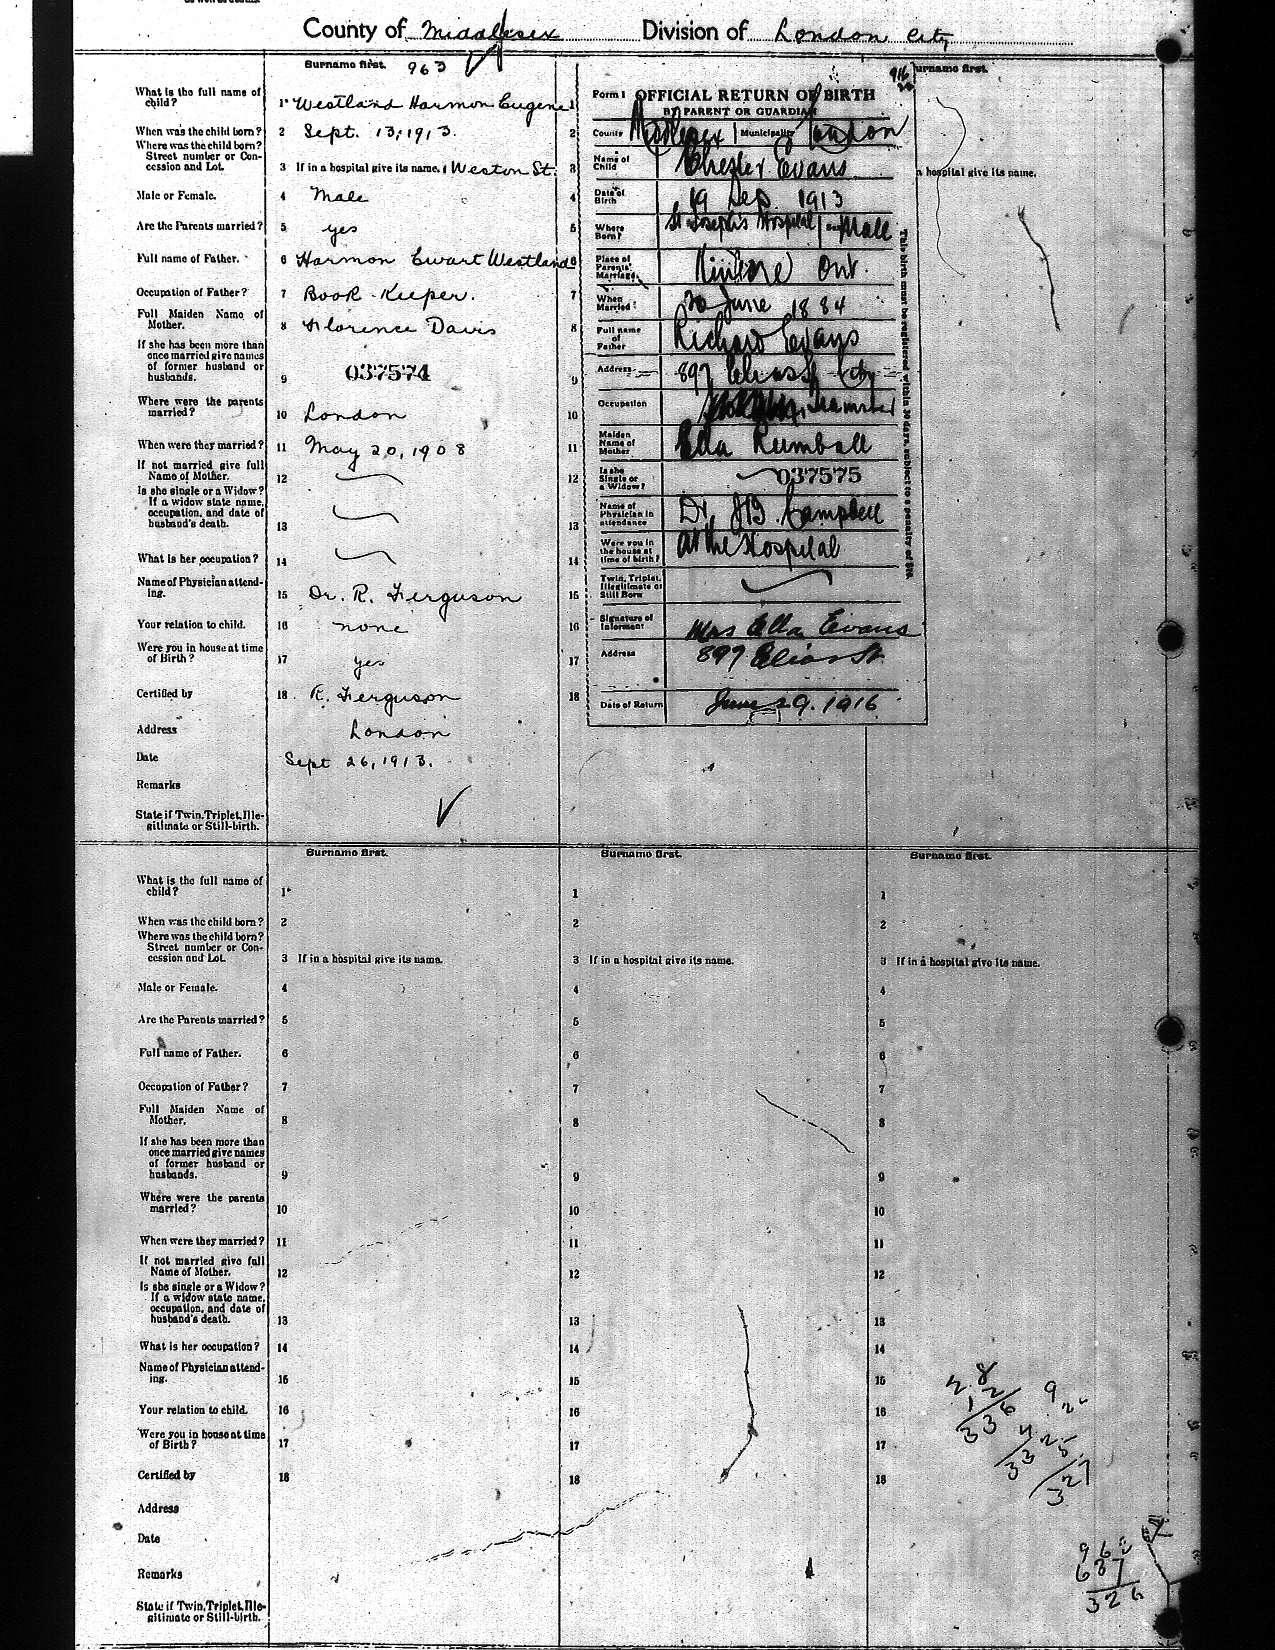 County of Middlesex Division of London City
Surname first. 963
What is the full name of child? 1 Westland Harmon Eugene
When was the child born? 2 Sept. 13, 1913.
Where was the child born? Street number or Concession and Lot. 3 If in a hospital give its name. Weston St.
Male or Female. 4 Male
Are the Parents married? 5 yes
Full name of Father. 6 Harmon Ewart Westland
Occupation of Father? 7 Book-Keeper.
Full Maiden Name of Mother. 8 Florence Davis
If she has been more than once married give names of former husband or husbands. 9 037574
Where were the parents married? 10 London
When were they married? 11 May 20, 1908
If not married give full Name of Mother. 12
Is she single or a Widow? If a widow state name, occupation, and date of husband's death. 13
What is her occupation? 14
Name of Physician attending. 15 Dr. R. Ferguson
Your relation to child. 16 none
Were you in house at time of Birth? 17 yes
Certified by 18 R. Ferguson
Address London
Date Sept 26, 1913.
Remarks
State if Twin, Triplet, Illegitimate or Still-birth.
916
urname first.
hospital give its name.
Form 1 OFFICIAL RETURN OF BIRTH
BY PARENT OR GUARDIAN
County Middlesex Municipality London
Name of Child Chesley Evans
Date of Birth 19 Sep. 1913
Where Born? St Joseph's Hospital Sex Male
Place of Parents' Marriage Kintore Ont.
When Married? 30 June 1884
Full name of Father Richard Evans
Address 897 Elias St City
Occupation Teamster
Maiden Name of Mother Ella Rumball
Is she Single or a Widow? 037575
Name of Physician in attendance Dr. Campbell
Were you in the house at time of birth? At the Hospital
Twin, Triplet, Illegitimate or Still Born
Signature of Informant Mrs Ella Evans
Address 897 Elias St.
Date of Return June 29. 1916
This birth must be registered within 30 days, subject to a penalty of
Surname first. Surname first. Surname first.
What is the full name of child? 1 1 1
When was the child born? 2 2 2
Where was the child born? Street number or Concession and Lot. 3 If in a hospital give its name. 3 If in a hospital give its name. 3 If in a hospital give its name.
Male or Female. 4 4 4
Are the Parents married? 5 5 5
Full name of Father. 6 6 6
Occupation of Father? 7 7 7
Full Maiden Name of Mother. 8 8 8
If she has been more than once married give names of former husband or husbands. 9 9 9
Where were the parents married? 10 10 10
When were they married? 11 11 11
If not married give full Name of Mother. 12 12 12
Is she single or a Widow? If a widow state name, occupation, and date of husband's death. 13 13 13
What is her occupation? 14 14 14
Name of Physician attending. 15 15 15
Your relation to child. 16 16 16
Were you in house at time of Birth? 17 17 17
Certified by 18 18 18
Address
Date
Remarks
State if Twin, Triplet, Illegitimate or Still-birth.
336
327
962
637
326